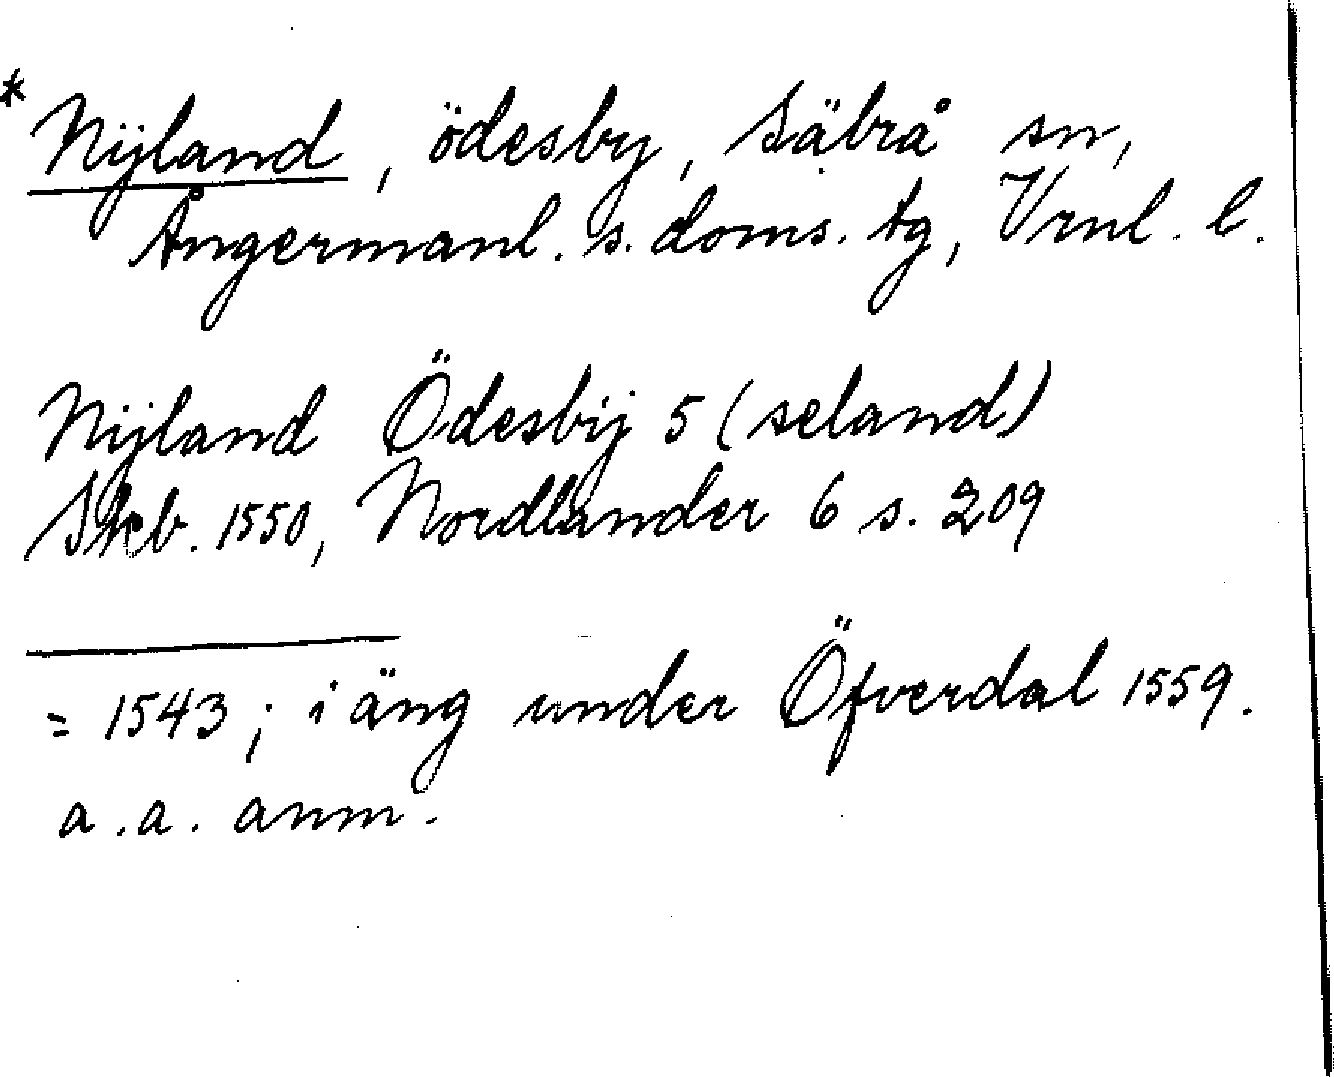 * Nijland, ödesby, Säbrå sn,
Ångermanl. s. doms. tg, Vrnl. l.
Nijland Ödesbij 5 (seland)
Skb. 1550, Nordlander 6 s. 209
= 1543; i äng under Öfverdal 1559.
a.a. anm.